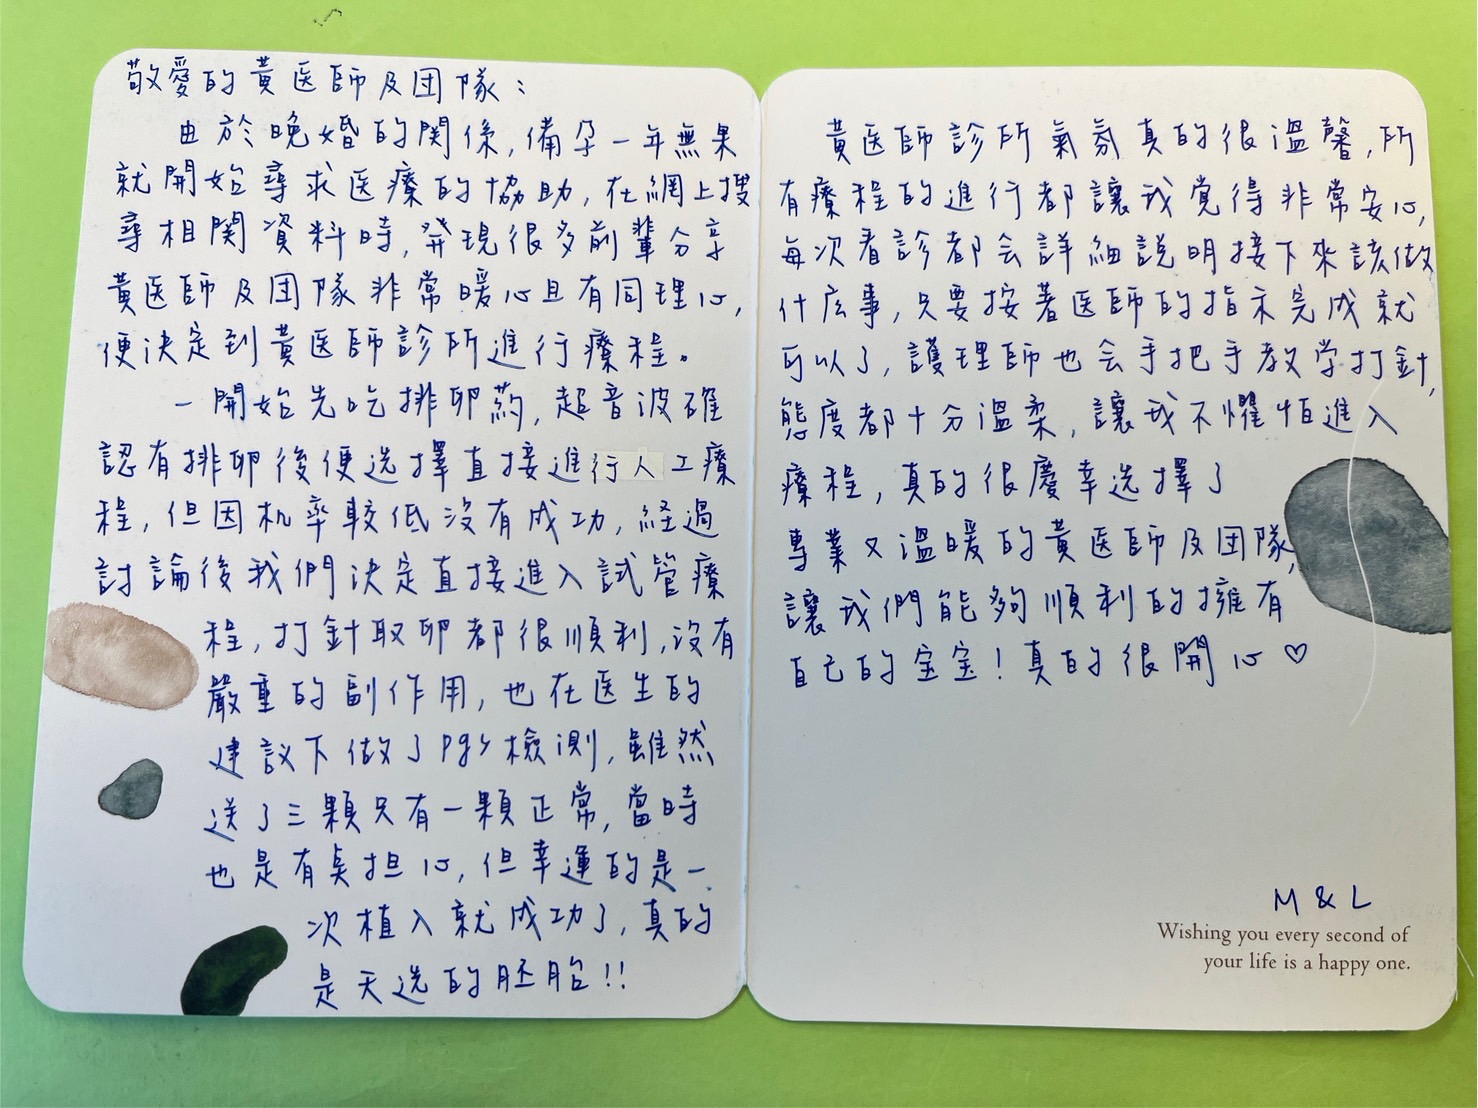 敬愛的黃医師及团隊：
由於晚婚的関係,備孕一年無果
就開始尋求医療的協助,在網上搜
尋相関資料時,発現很多前輩分享
黃医師及团隊非常暖心且有同理心,
便決定到黃医師診所進行療程。
一開始先吃排卵葯,超音波確
認有排卵後便选擇直接進行人工療
程,但因机率較低沒有成功,経過
討論後我們決定直接進入試管療
程,打針取卵都很順利,沒有
嚴重的副作用,也在医生的
建议下做了pgs檢測,雖然
送了三顆只有一顆正常,當時
也是有奌担心,但幸運的是一
次植入就成功了,真的
是天选的胚胎!!
黃医師診所氣氛真的很溫馨,所
有療程的進行都讓我覚得非常安心,
每次看診都会詳細說明接下來該做
什広事,只要按著医師的指示完成就
可以了,護理師也会手把手教学打針,
態度都十分溫柔,讓我不懼怕進入
療程,真的很慶幸选擇了
專業又溫暖的黃医師及团隊,
讓我們能夠順利的擁有
自己的宝宝!真的很開心♡
M & L
Wishing you every second of
your life is a happy one.